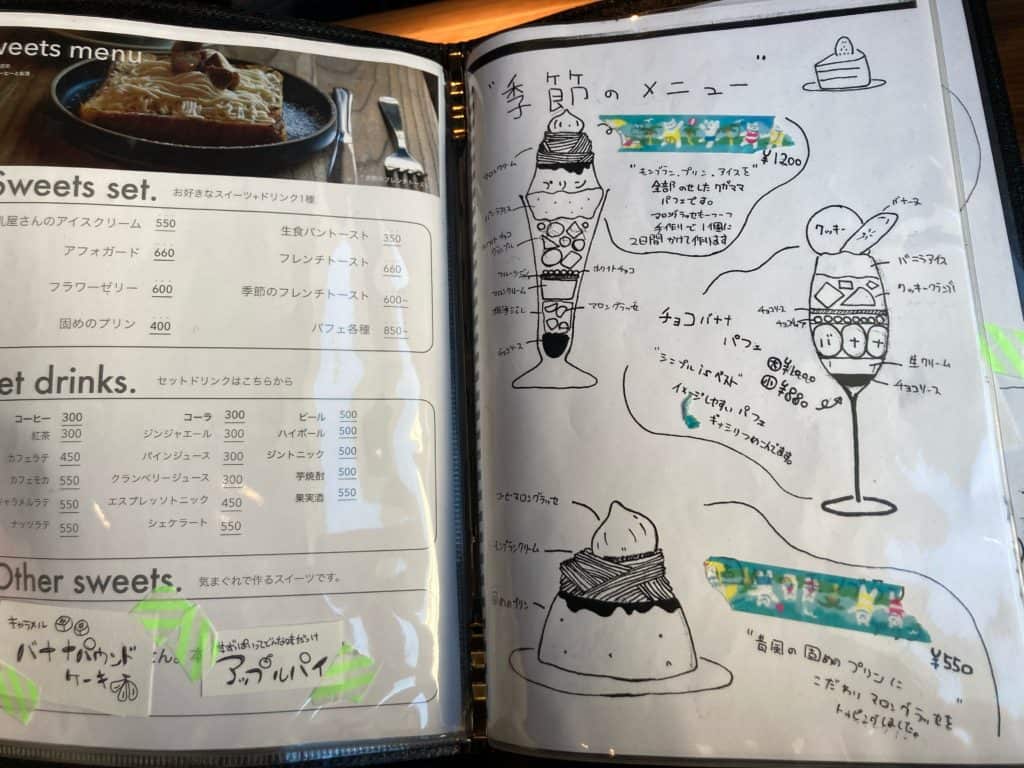 weets menu
Sweets set. お好きなスイーツ+ドリンク1種
乳屋さんのアイスクリーム 550
アフォガード 660
フラワーゼリー 600
固めのプリン 400
生食パントースト 350
フレンチトースト 660
季節のフレンチトースト 600~
パフェ各種 850~
et drinks. セットドリンクはこちらから
コーヒー 300
紅茶 300
カフェラテ 450
カフェモカ 550
キャラメルラテ 550
ナッツラテ 550
コーラ 300
ジンジャエール 300
パインジュース 300
クランベリージュース 300
エスプレッソトニック 450
シェケラート 550
ビール 500
ハイボール 500
ジントニック 500
芋焼酎 500
果実酒 550
Other sweets. 気まぐれで作るスイーツです。
キャラメル
バナナパウンド
ケーキ
アップルパイ
"季節のメニュー"
¥1200
"モンブラン、プリン、アイスを"
全部のせした
パフェです。
マロングラッセも一つ一つ
手作りで1個に
2日間かけて作ります
マロンクリーム
プリン
ホワイトチョコ
マロンクリーム
マロングラッセ
チョコソース
バナーヌ
クッキー
バニラアイス
クッキークランブル
チョコソース
バナナ
生クリーム
チョコソース
チョコバナナ
パフェ
"シンプル is ベスト"
大 ¥1200
小 ¥880
イメージしやすいパフェ
ギッシリつめこんでます。
コーヒーマロングラッセ
モンブランクリーム
固めのプリン
¥550
"昔風の固めのプリンに
こだわりマロングラッセを"
トッピングしました。